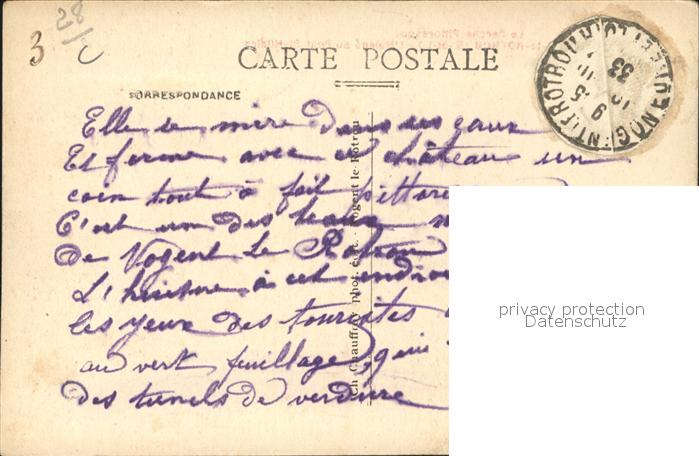 28/
3 c
CARTE POSTALE
CORRESPONDANCE
NOGENT LE ROTROU
33
Elle se mire Dans ses eaux
Et forme avec le château un
coin tout à fait pittore
C'est un des beaux
De Nogent Le Rotrou
L'huisine à cet endroit
les yeux des touristes
au vert fuillage, qui
des tunels de verdure
Ch. Chauffray Phot. édit. - Nogent-le-Rotrou
privacy protection
Datenschutz